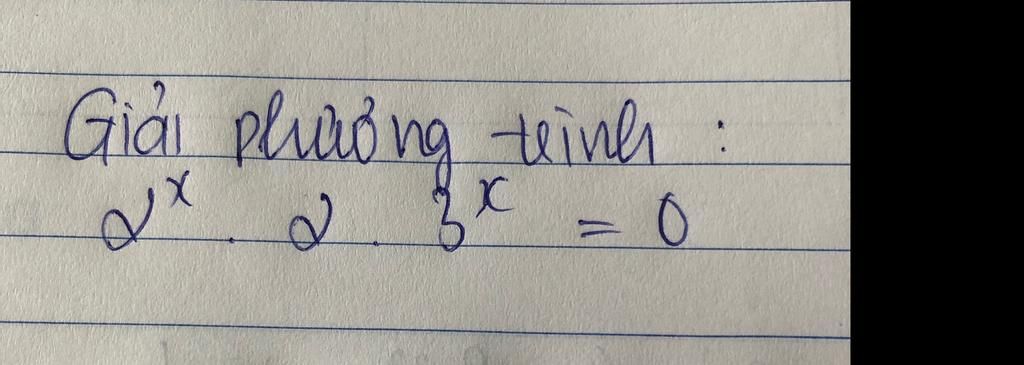 Giải phương trình :
2^x . 2 . 3^x = 0